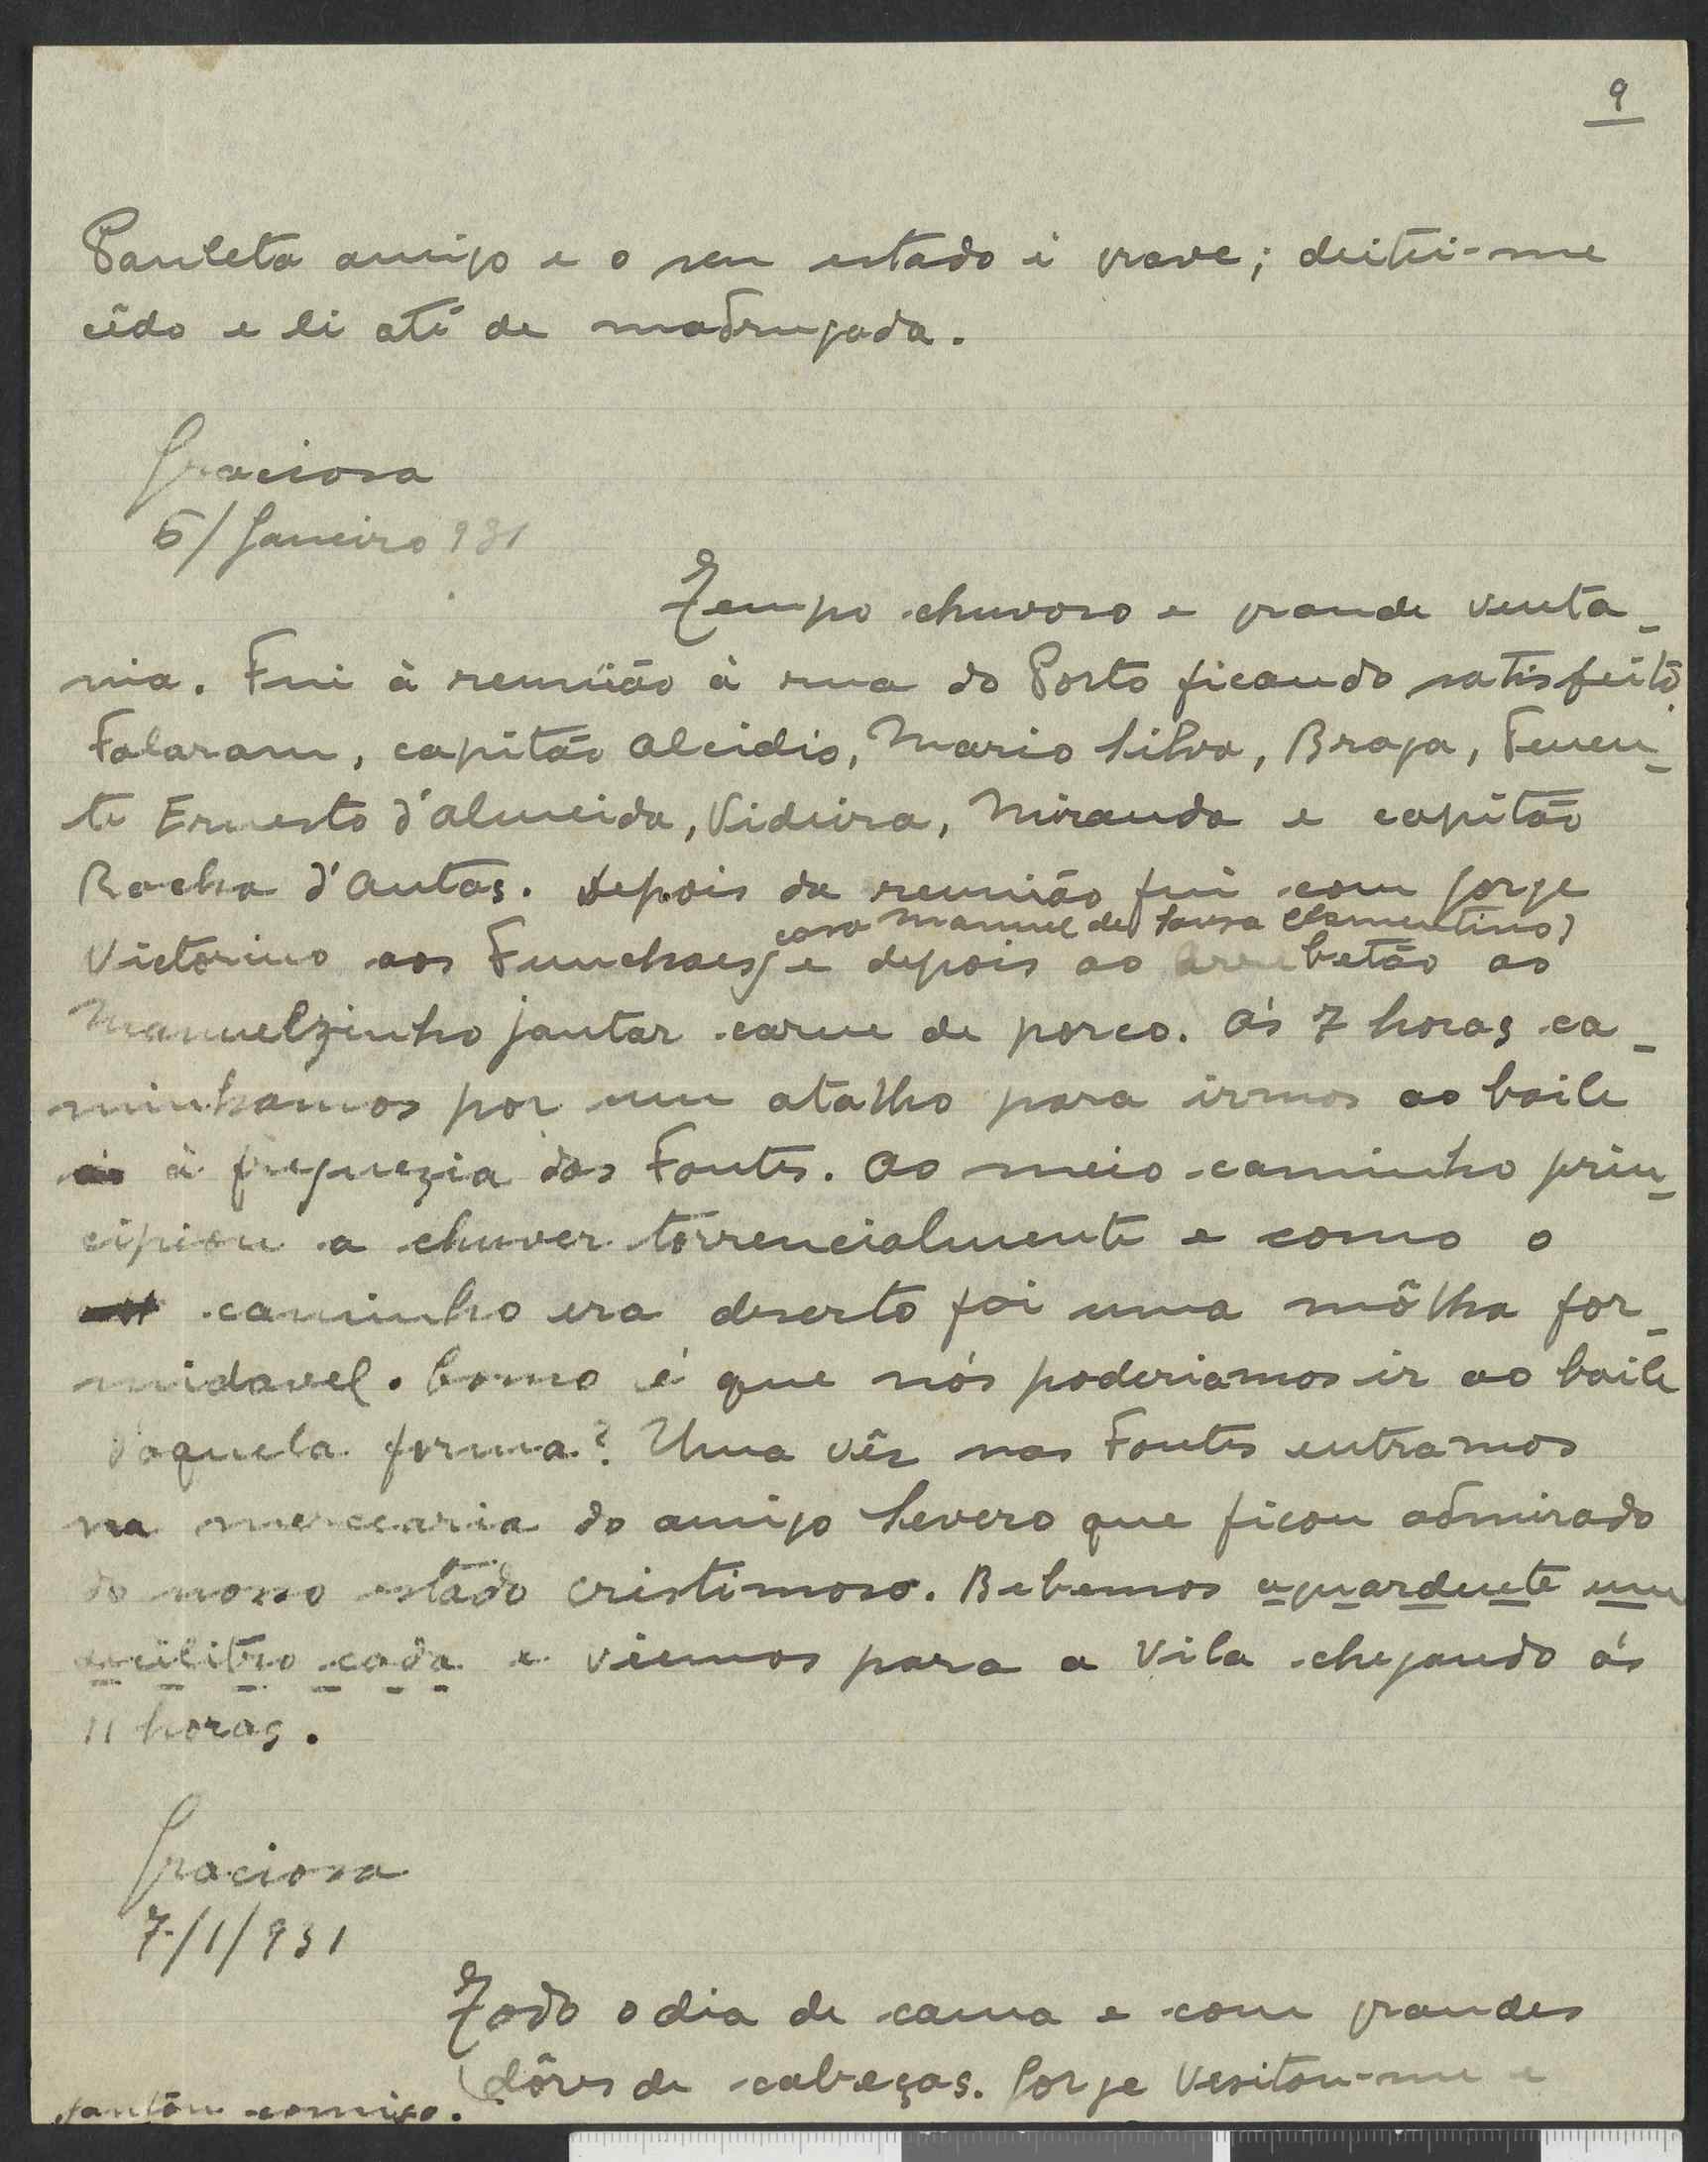 9
Pauleta amigo e o seu estado é grave; deitei-me
cêdo e li até de madrugada.
Graciosa
6/Janeiro 931
Tempo chuvoso e grande venta-
nia. Fui à reunião à rua do Porto ficando satisfeito.
Falaram, capitão Alcidio, Mario Silva, Braga, Tenen-
te Ernesto d'Almeida, Videira, Miranda e capitão
Rocha d'Antas. Depois da reunião fui com Jorge
casa Manuel de Sousa Clementino)
Victorino aos Funchaes( e depois ao betão ao
Manuelzinho jantar carne de porco. Ás 7 horas ca-
minhamos por um atalho para irmos ao baile
à freguezia das Fontes. Ao meio caminho prin-
cipiou a chuver torrencialmente e como o
caminho era deserto foi uma môlha for-
midavel. Como é que nós poderiamos ir ao baile
daquela forma? Uma vês nas Fontes entramos
na mercearia do amigo Severo que ficou admirado
do nosso estado cristimoso. Bebemos aguardente um
decilitro cada e viemos para a Vila chegando ás
11 horas.
Graciosa
7/1/931
Todo o dia de cama e com grandes
dôres de cabeças. Jorge Vesitou-me e
jantou comigo.